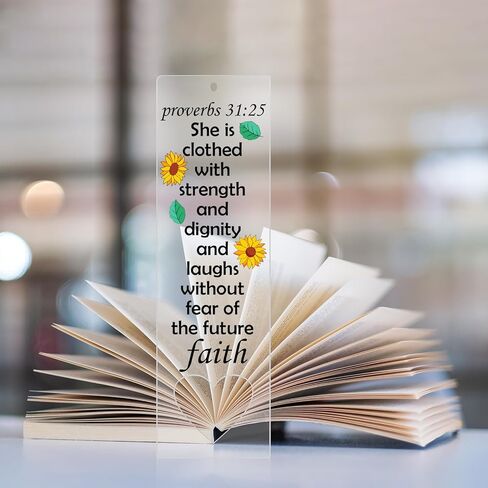 proverbs 31:25
She is
clothed
with
strength
and
dignity
and
laughs
without
fear of
the future
faith